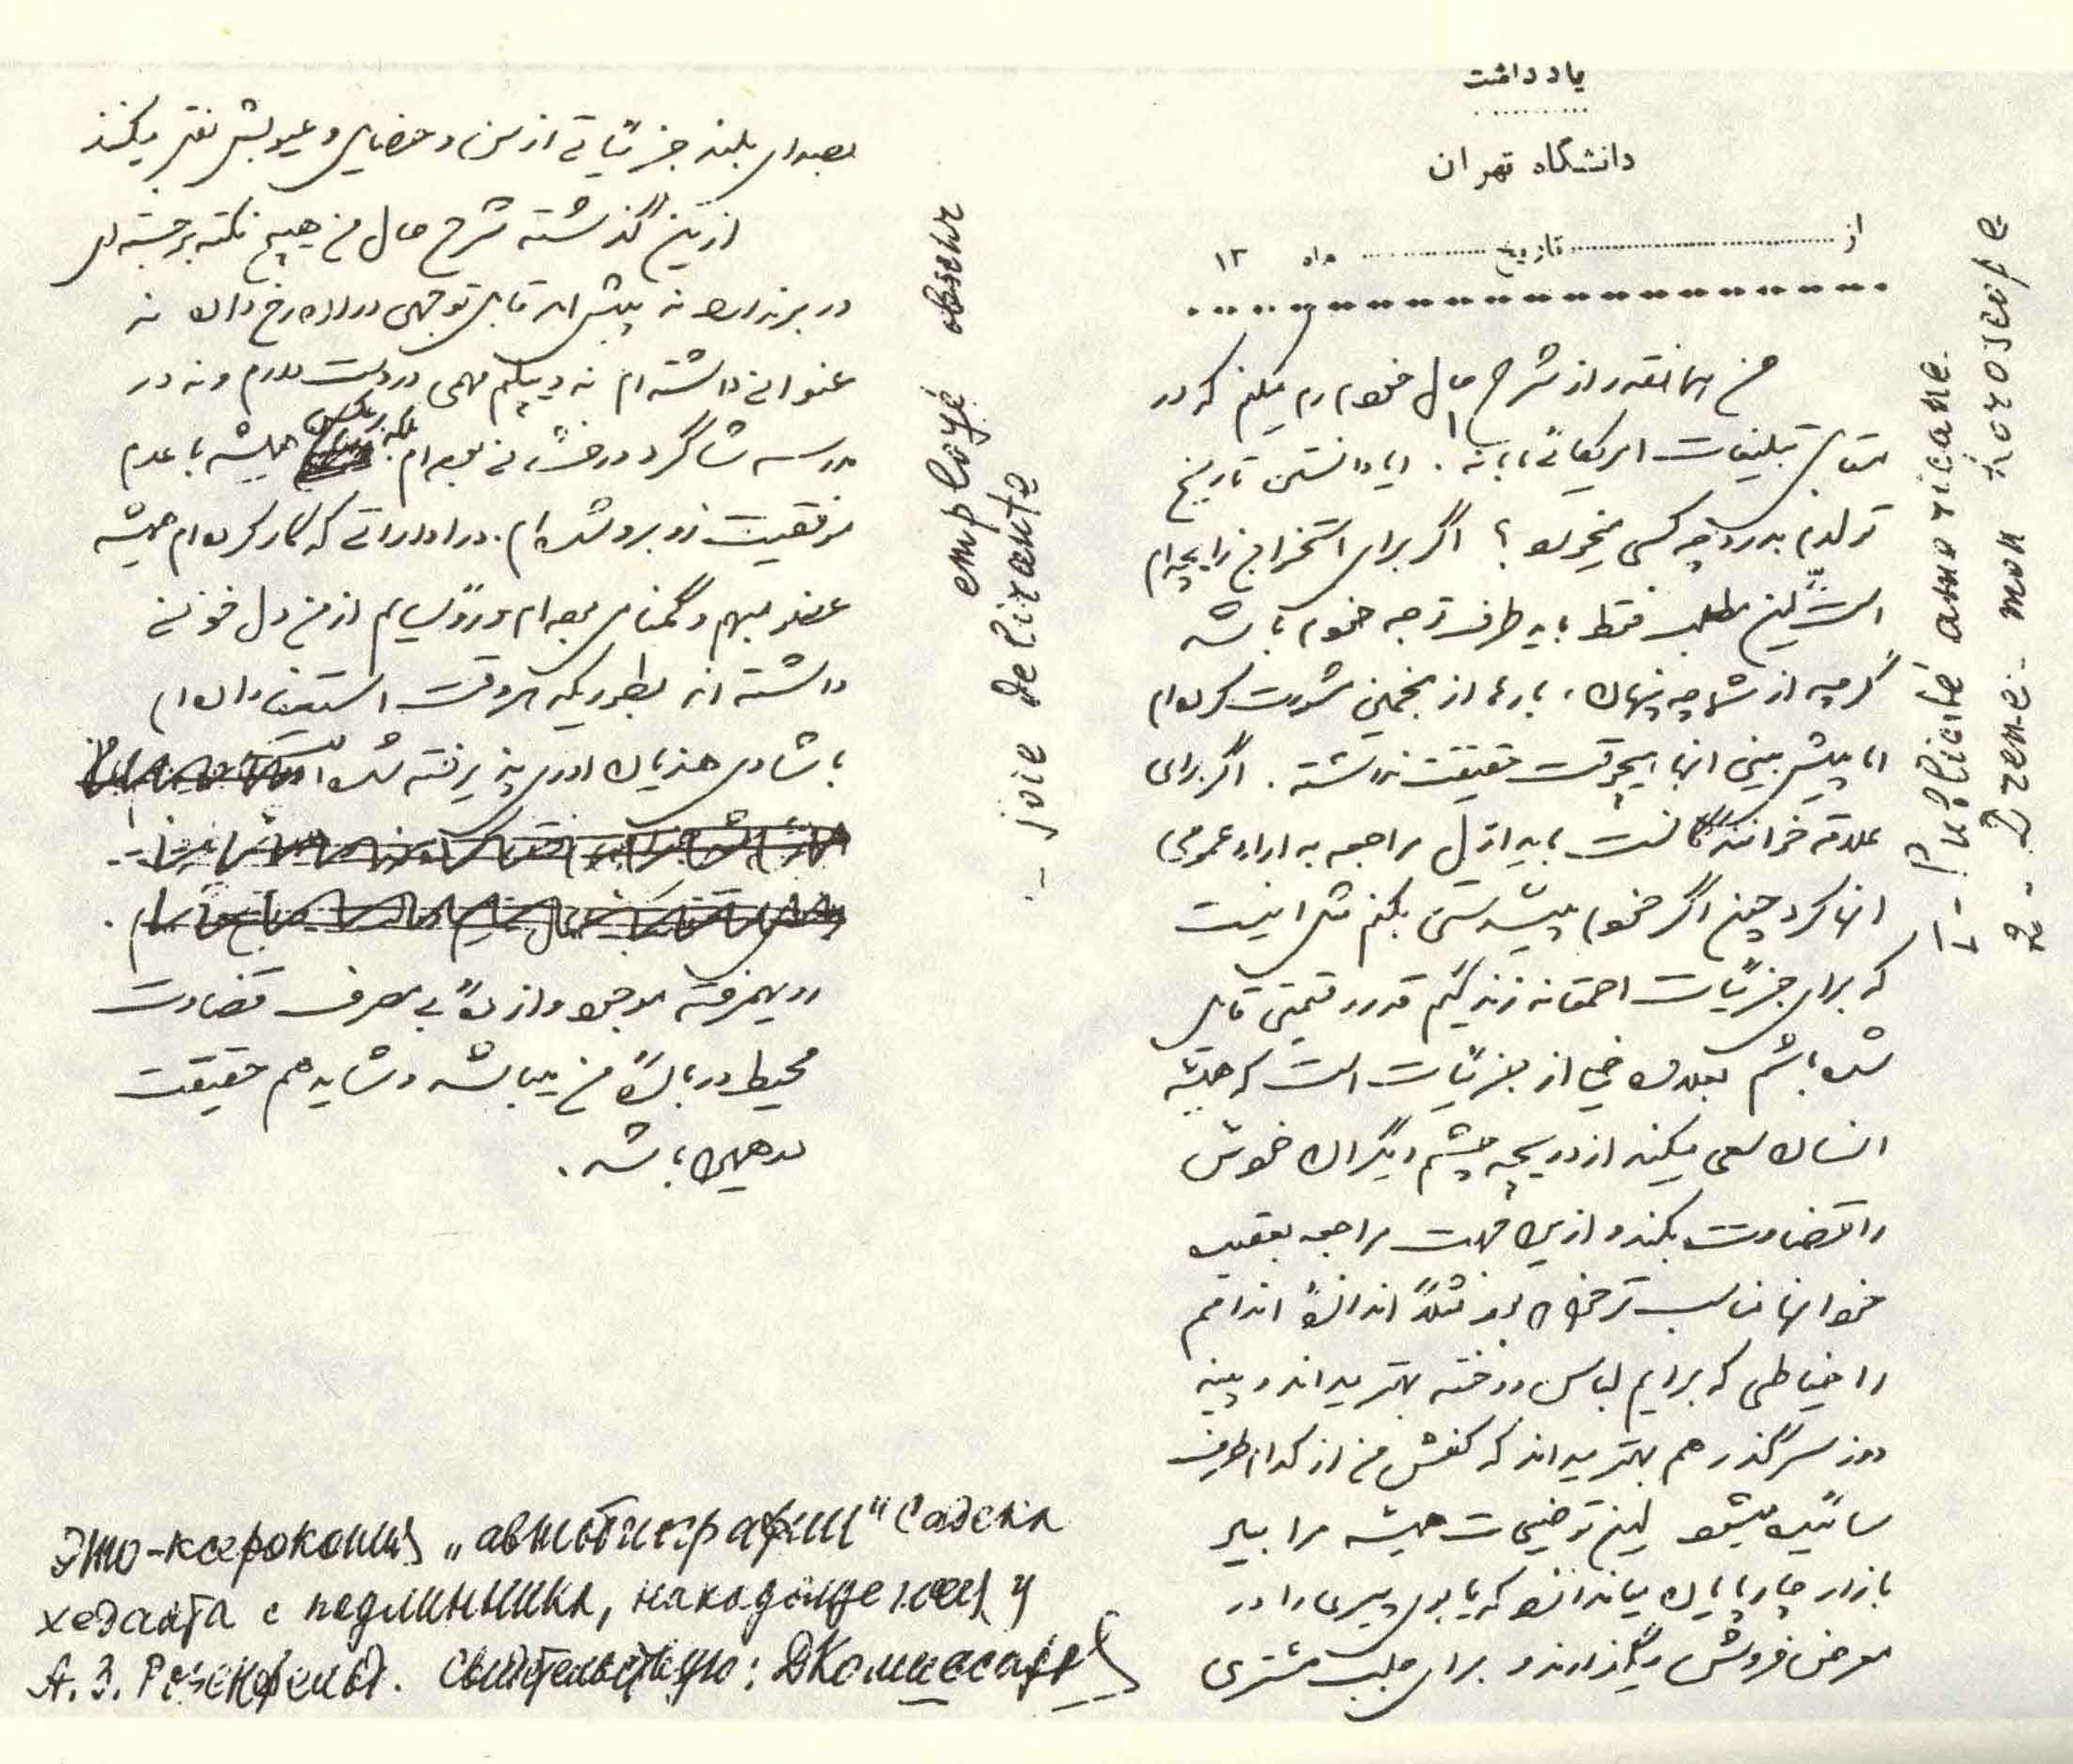 یادداشت
دانشگاه تهران
از ............ تاریخ ............ ماه ۱۳
من همانقدر از شرح حال خودم رم میکنم که در
مقابل تبلیغات امریکائی مآبانه. ایا دانستن تاریخ
تولدم بدرد چه کسی میخورد؟ اگر برای استخراج زایچه‌ام
است این مطلب فقط باید طرف توجه خودم باشد
گرچه از شما چه پنهان، بارها از منجمین مشورت کرده‌ام
اما پیش بینی آنها هیچوقت حقیقت نداشته. اگر برای
علاقه خوانندگانست باید اول مراجعه به اراء عمومی
آنها کرد چون اگر خودم پیشدستی بکنم مثل اینست
که برای جزئیات احمقانه زندگیم قدر و قیمتی قایل
شده باشم بعلاوه خیلی از جزئیات است که همیشه
انسان سعی میکند از دریچه چشم دیگران خودش
را قضاوت بکند و ازین جهت مراجعه بعقیده
خود آنها مناسب تر خواهد بود مثلاً اندازهٔ اندامم
را خیاطی که برایم لباس دوخته بهتر میداند و پینه
دوز سر گذر هم بهتر میداند که کفش من از کدام طرف
سائیده میشود. این توضیحات همیشه مرا بیاد
بازار چارپایان میاندازد که یابوی پیری را در
معرض فروش میگذارند و برای جلب مشتری
بصدای بلند جزئیاتی از سن و خصایل و عیوبش نقل میکنند
ازین گذشته شرح حال من هیچ نکته برجسته‌ای
در بر ندارد نه پیش آمد قابل توجهی در آن رخ داده نه
عنوانی داشته‌ام نه دیپلم مهمی در دست دارم و نه در
مدرسه شاگرد درخشانی بوده‌ام بلکه بر عکس همیشه با عدم
موفقیت روبرو شده‌ام. در اداراتی که کار کرده‌ام همیشه
عضو مبهم و گمنامی بوده‌ام و رؤسایم از من دل خونی
داشته‌اند بطوریکه هر وقت استعفا داده‌ام
با شادی هذیان آوری پذیرفته شده است
رویهمرفته موجود وازدهٔ بی مصرف قضاوت
محیط دربارهٔ من میباشد و شاید هم حقیقت
در همین باشد.
employé obscur
– joie délirante
1- Publicité américaine
2- Drene. mon horoscope
Это – ксерокопия „автобиографии“ Садека
Хедаята с подлинника, находящегося у
А. З. Розенфельд. Свидетельствую: ДКомиссаров